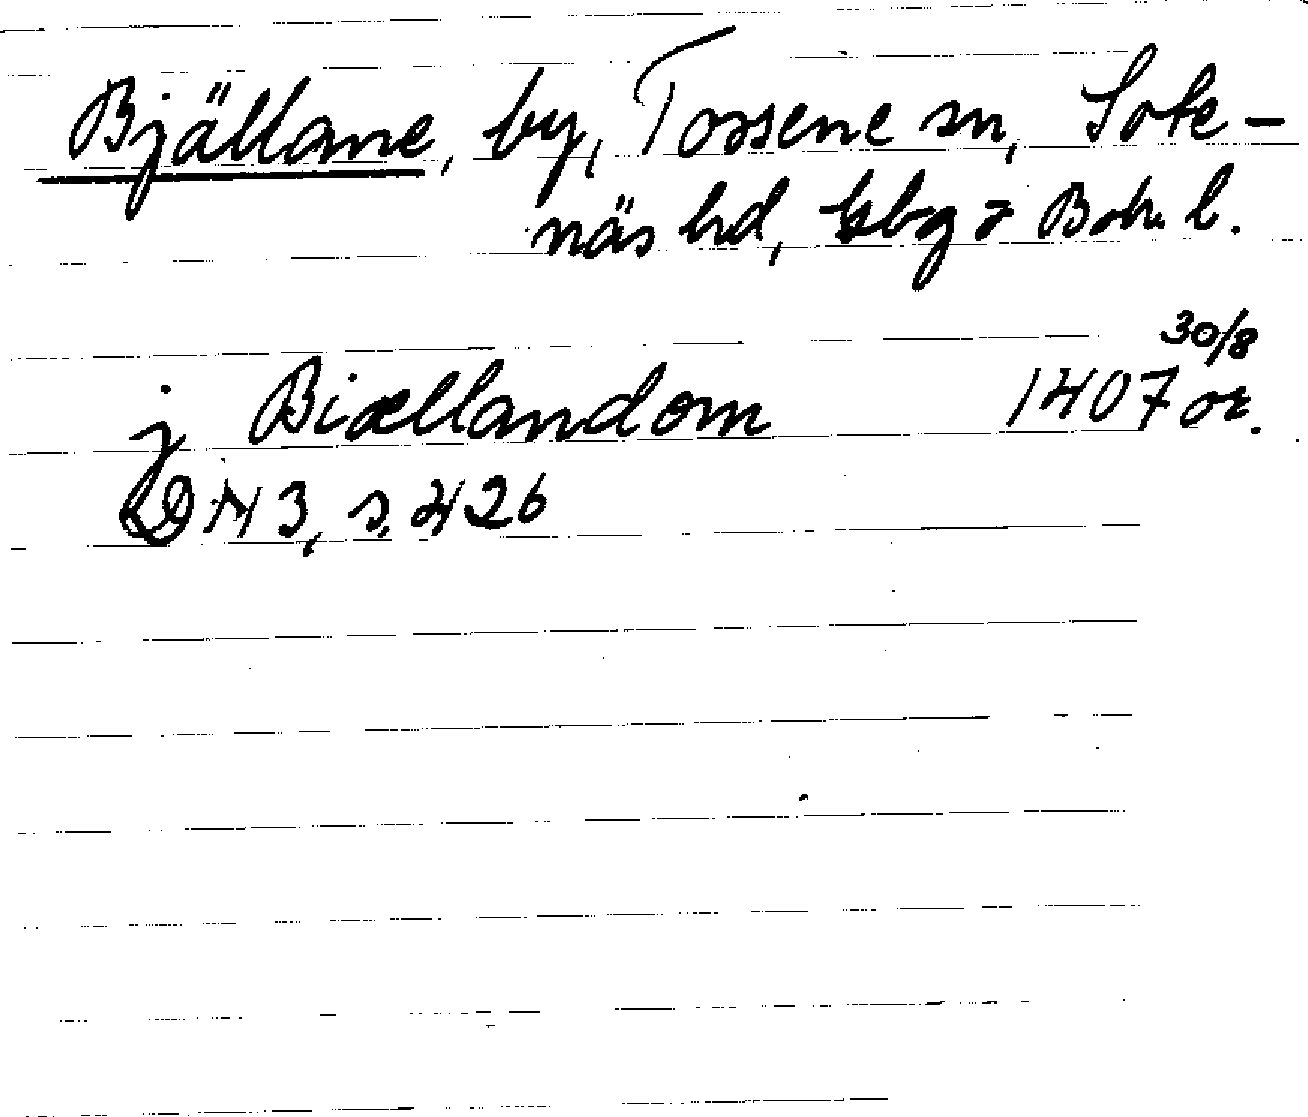 Bjällane, by, Tossene sn, Sote-
näs hd, Gbg o Boh. l.
j Biællandom 1407 30/8 or.
DN 3, s. 426